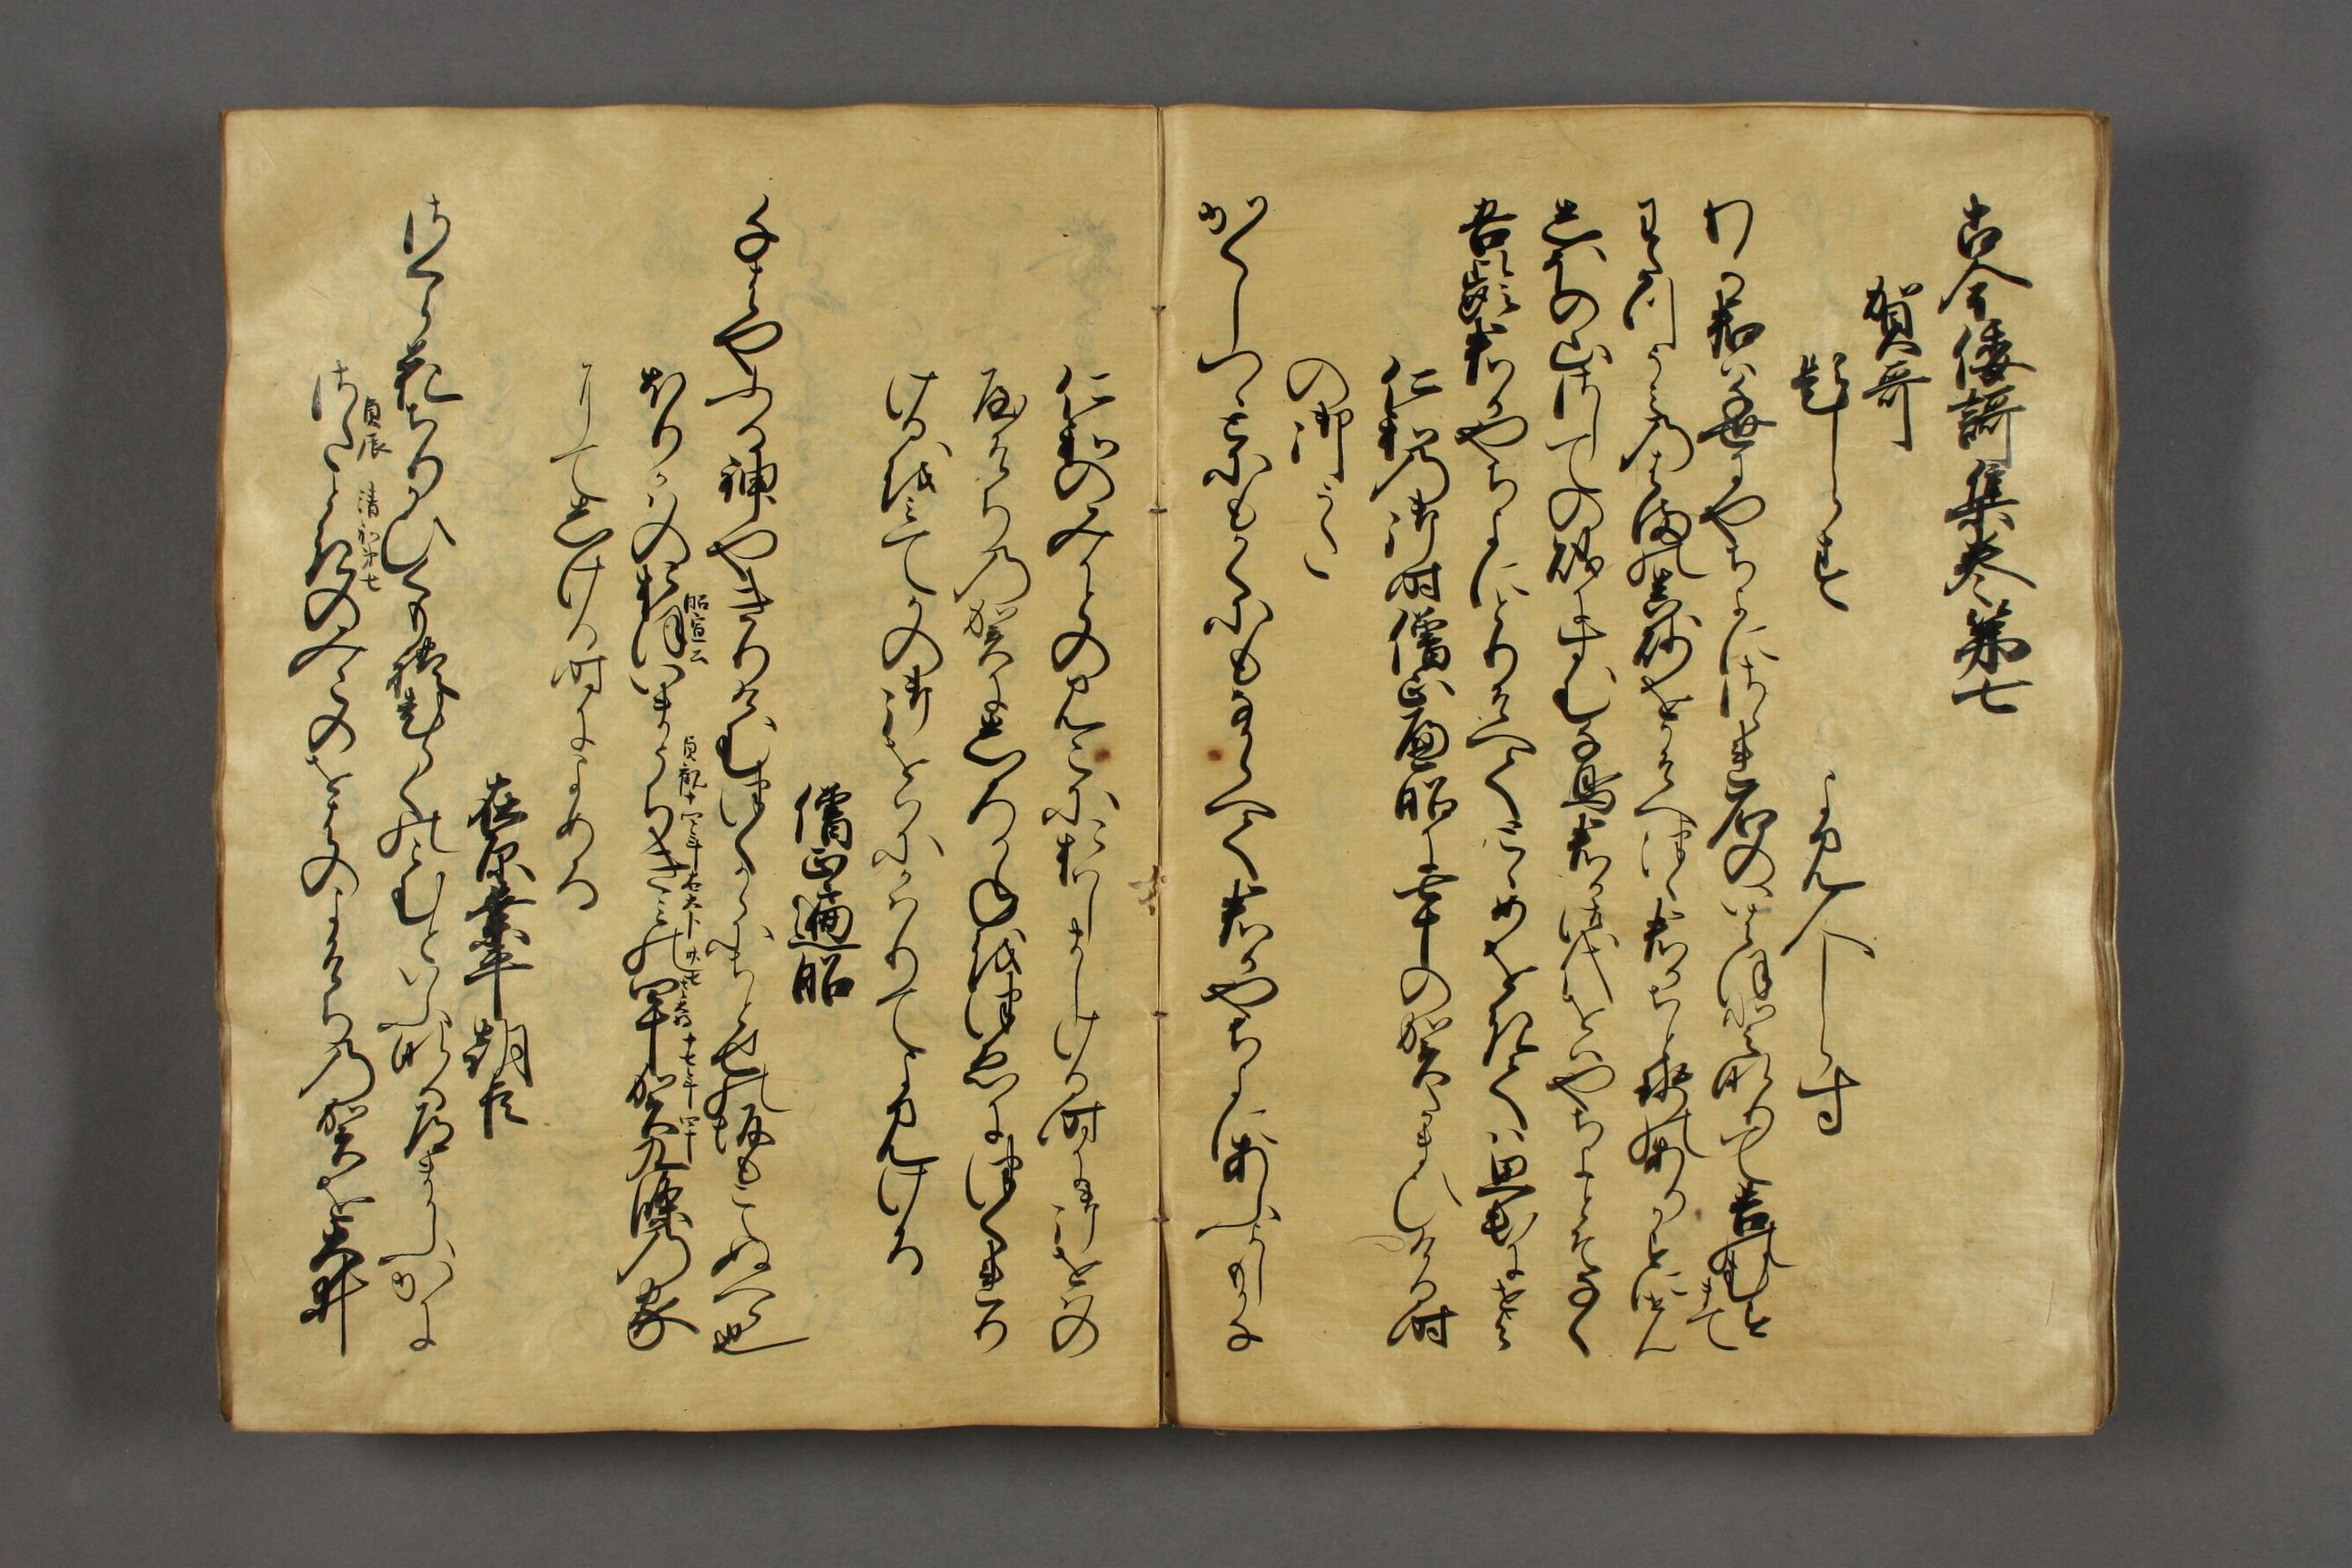 古今倭謌集巻第七
賀哥
題しらす
よみ人しらす
わか君は千世にやちよにさゝれ石のいはほとなりて苔のむすまて
わたつ海の濱の真砂をかそへつゝ君かちとせのありかすにせん
しほの山さしての磯にすむ千鳥君か御代をはやちよとそなく
吾齢君かやちよにとりそへてとゝめをきては思出にせよ
仁和の御時僧正遍昭に七十の賀たまひける時
の御うた
かくしつゝとにもかくにもなからへて君かやちよにあふよしもかな
仁和のみかとのみこにおはしましける時に御をはの
やそちの賀にしろかねを杖につくれり
けるを見てかの御をはにかはりてよみける
僧正遍昭
千はやふる神やきりけむつくからにちとせの坂もこえぬへら也
ほりかはのおほいまうちきみの四十賀九條の家
昭宣公
貞観十四年右大卜卅七 十七年四十
にてしける時によめる
在原業平朝臣
さくら花ちりかひくもれ老らくのこむといふなる道まかふかに
貞辰 清和第七
さたときのみこのをはのよそちの賀を大井